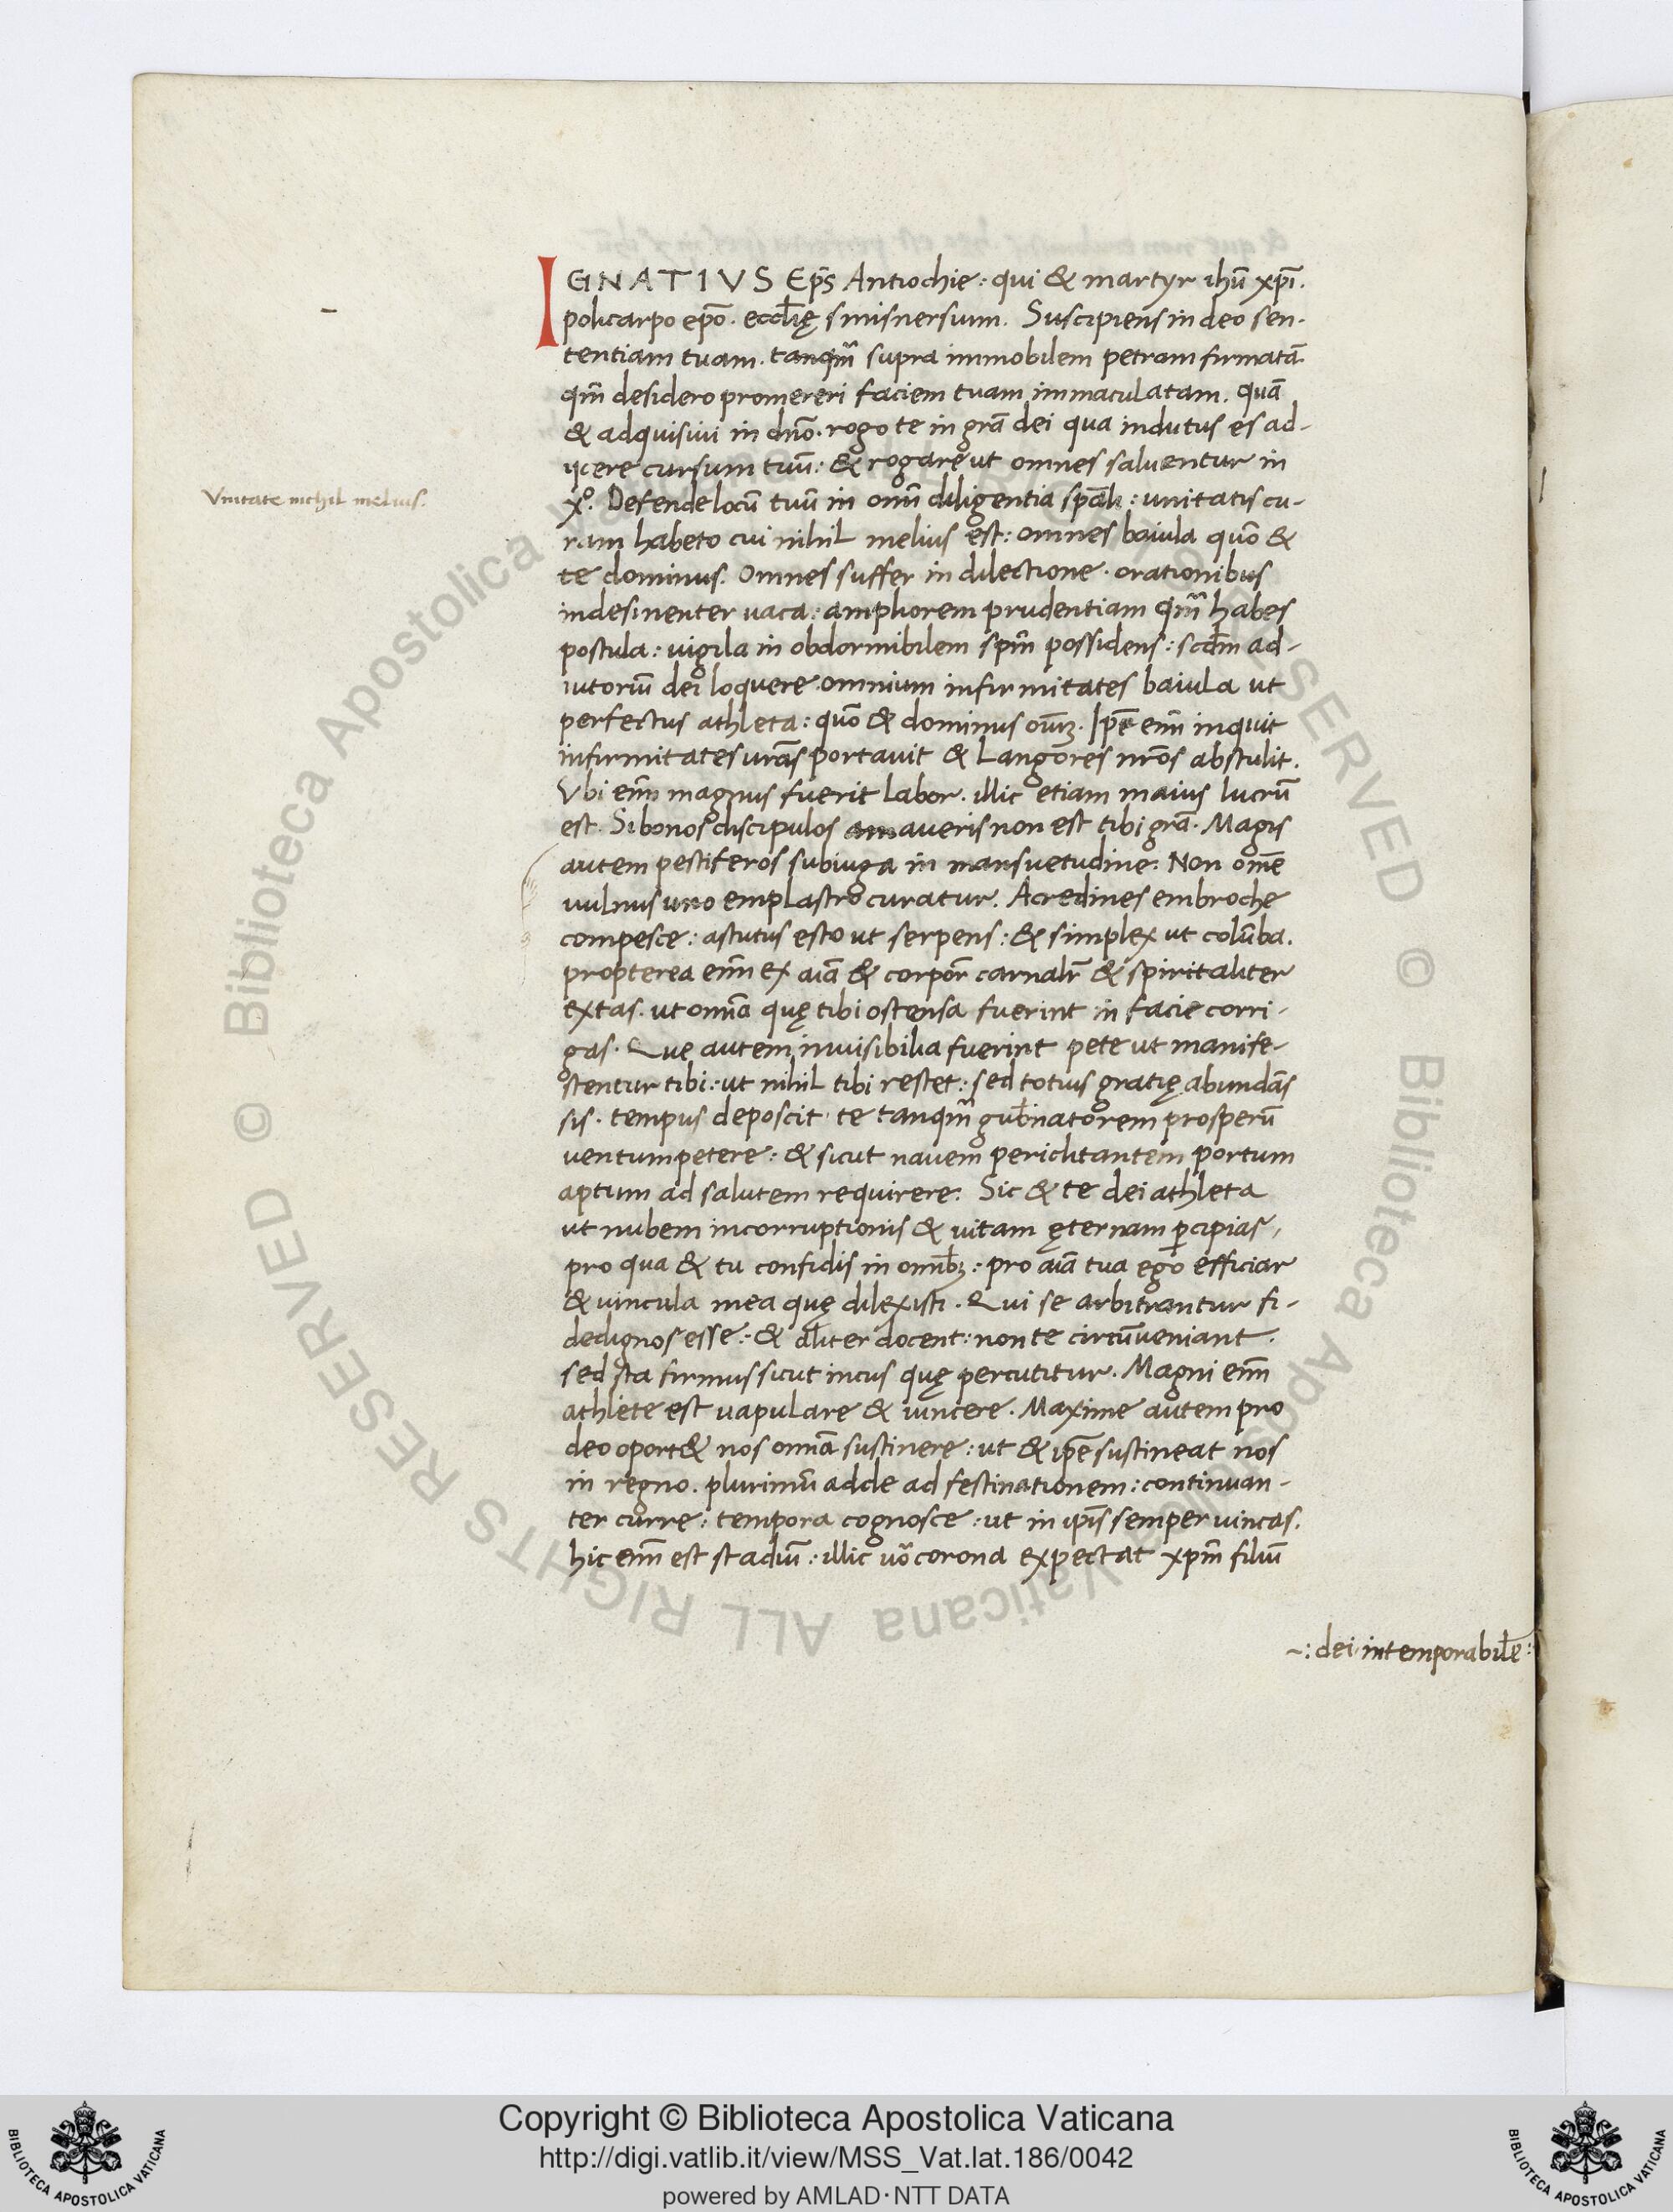 IGNATIVS Ep̄s Antiochie: qui & martyr ihū xp̄i.
policarpo ep̄o. eccl̄ię smisnersum. Suscipiens in deo sen-
tentiam tuam. tanqm̄ supra immobilem petram firmatā.
qm̄ desidero promereri faciem tuam immaculatam. quā
& adquisiui in dn̄o. rogo te in grā dei qua indutus es ad-
ijcere cursum tuū: & rogare ut omnes saluentur in
xº. Defende locū tuū in omī diligentia sp̄ali: unitatis cu-
Vnitate nichil melius.
ram habeto cui nihil melius est: omnes baiula quō &
te dominus. Omnes suffer in dilectione. orationibus
indesinenter uaca: ampliorem prudentiam qm̄ habes
postula: uigila in obdormibilem spm̄ possidens: scdm̄ ad-
iutoriū dei loquere omnium infirmitates baiula ut
perfectus athleta: quō & dominus oīuꝫ. Ip̄e enī inquit
infirmitates urās portauit & Langores nr̄os abstulit.
Vbi enī magnus fuerit labor. illic etiam maius lucrū
est. Si bonos discipulos amaueris non est tibi grā. Magis
autem pestiferos subiuga in mansuetudine. Non om̄e
uulnus uno emplastro curatur. Acredines embroche
compesce: astutus esto ut serpens: & simplex ut colūba.
propterea enī ex aīa & corpore carnalr̄ & spiritaliter
extas. ut omīa quę tibi ostensa fuerint in facie corri-
gas. Que autem inuisibilia fuerint pete ut manife-
stentur tibi: ut nihil tibi restet: sed totius gratię abundās
sis. tempus deposcit te tanqm̄ gub̄natorem prosperū
uentum petere: & sicut nauem periclitantem portum
aptum ad salutem requirere. Sic & te dei athleta
ut nubem incorruptionis & uitam ęternam p̱cipias,
pro qua & tu confidis in omībꝫ: pro aīa tua ego efficiar
& uincula mea quę dilexisti. Qui se arbitrantur fi-
dedignos esse: & al̄iter docent: non te circūueniant.
sed sta firmus sicut incus quę percutitur. Magni enī
athlete est uapulare & uincere. Maxime autem pro
deo oport& nos omīa sustinere: ut & ip̄e sustineat nos
in regno. plurimū adde ad festinationem: continuan-
ter curre: tempora cognosce: ut in ip̄is semper uincas.
hic enī est stadiū: illic uō corona expectat xpm̄ filiū
~: dei intemporabile:
Copyright © Biblioteca Apostolica Vaticana
http://digi.vatlib.it/view/MSS_Vat.lat.186/0042
powered by AMLAD·NTT DATA
BIBLIOTECA APOSTOLICA VATICANA
BIBLIOTECA APOSTOLICA VATICANA
© Biblioteca Apostolica Vaticana ALL RIGHTS RESERVED
© Biblioteca Apostolica Vaticana ALL RIGHTS RESERVED